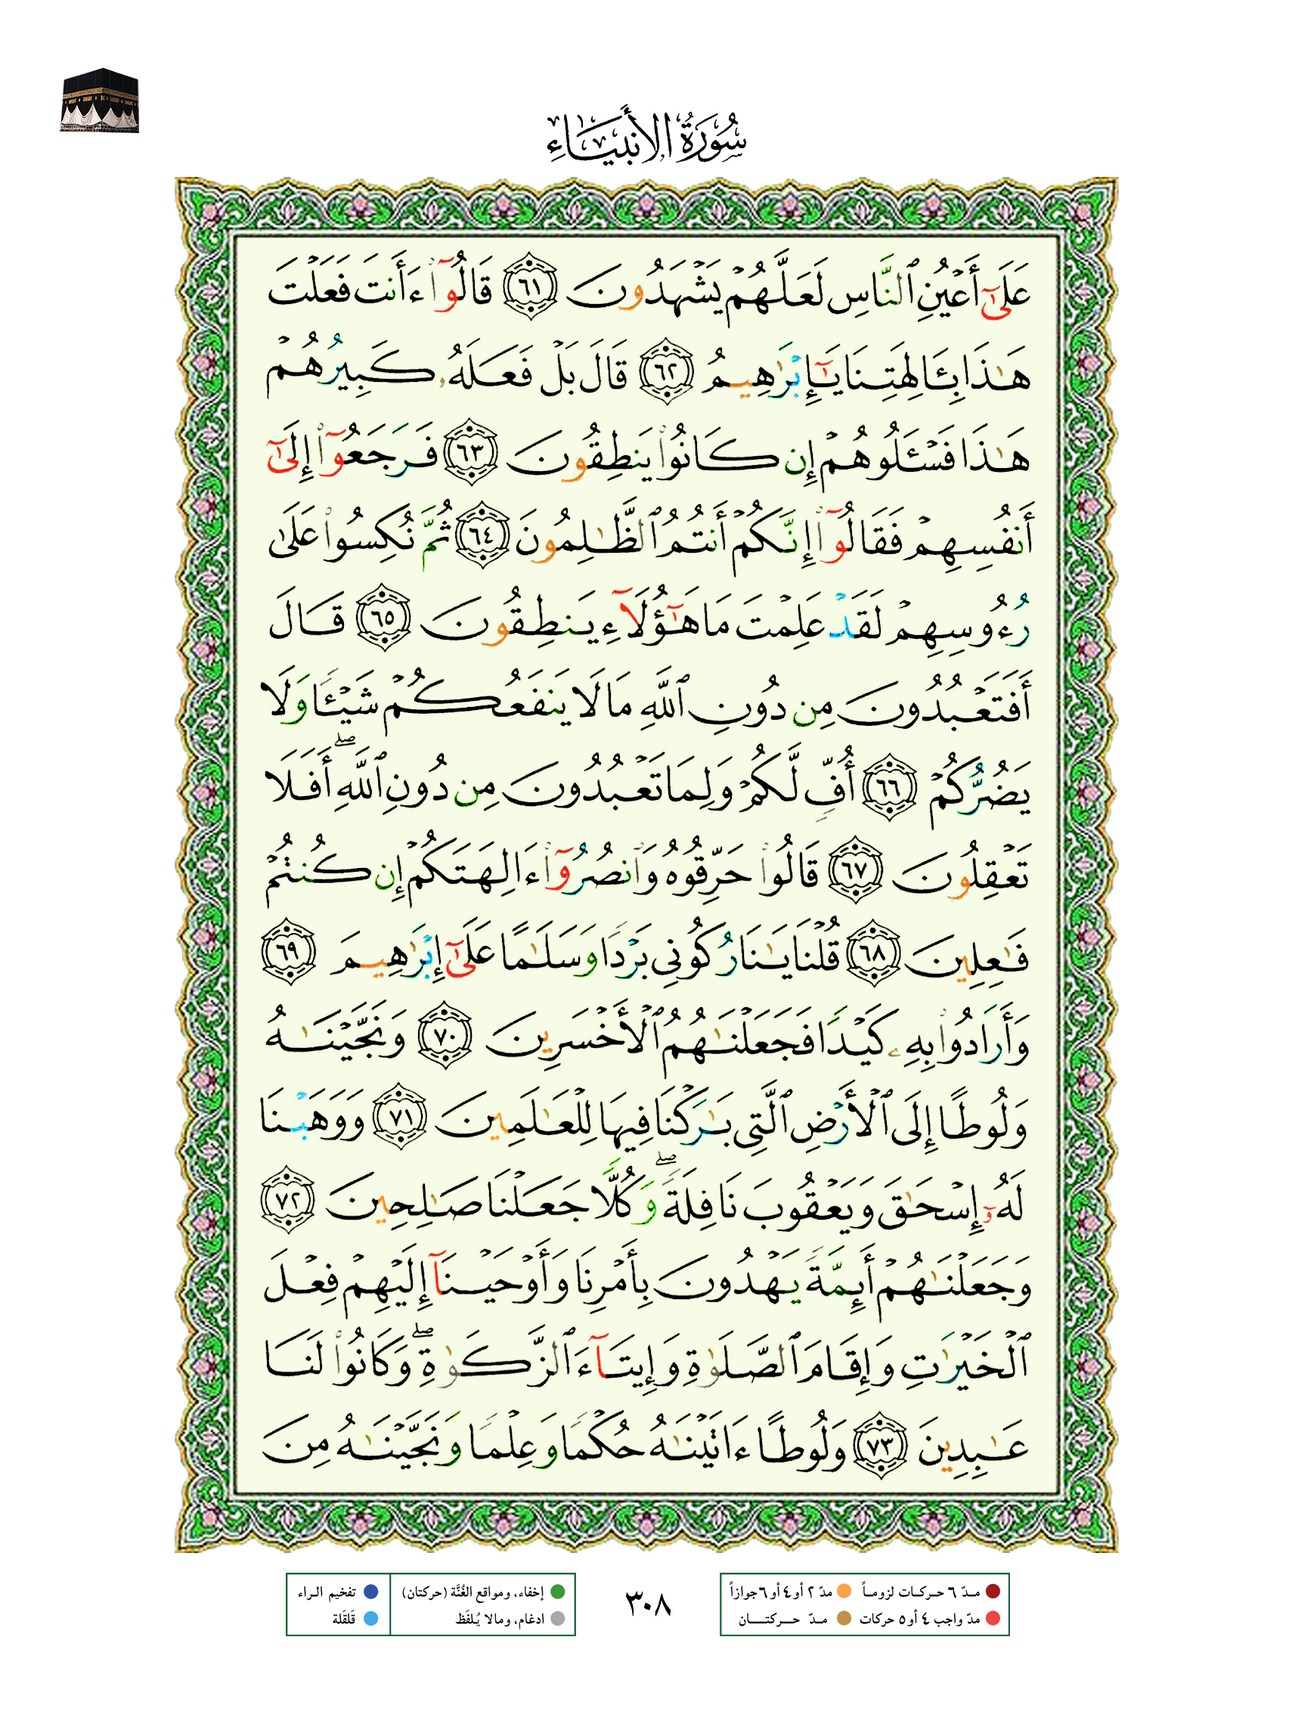 سُورَةُ الأَنبِيَاءِ
عَلَىٰٓ أَعْيُنِ ٱلنَّاسِ لَعَلَّهُمْ يَشْهَدُونَ ٦١ قَالُوٓا۟ ءَأَنتَ فَعَلْتَ
هَـٰذَا بِـَٔالِهَتِنَا يَـٰٓإِبْرَٰهِيمُ ٦٢ قَالَ بَلْ فَعَلَهُۥ كَبِيرُهُمْ
هَـٰذَا فَسْـَٔلُوهُمْ إِن كَانُوا۟ يَنطِقُونَ ٦٣ فَرَجَعُوٓا۟ إِلَىٰٓ
أَنفُسِهِمْ فَقَالُوٓا۟ إِنَّكُمْ أَنتُمُ ٱلظَّـٰلِمُونَ ٦٤ ثُمَّ نُكِسُوا۟ عَلَىٰ
رُءُوسِهِمْ لَقَدْ عَلِمْتَ مَا هَـٰٓؤُلَآءِ يَنطِقُونَ ٦٥ قَالَ
أَفَتَعْبُدُونَ مِن دُونِ ٱللَّهِ مَا لَا يَنفَعُكُمْ شَيْـًٔا وَلَا
يَضُرُّكُمْ ٦٦ أُفٍّ لَّكُمْ وَلِمَا تَعْبُدُونَ مِن دُونِ ٱللَّهِ ۖ أَفَلَا
تَعْقِلُونَ ٦٧ قَالُوا۟ حَرِّقُوهُ وَٱنصُرُوٓا۟ ءَالِهَتَكُمْ إِن كُنتُمْ
فَـٰعِلِينَ ٦٨ قُلْنَا يَـٰنَارُ كُونِى بَرْدًا وَسَلَـٰمًا عَلَىٰٓ إِبْرَٰهِيمَ ٦٩
وَأَرَادُوا۟ بِهِۦ كَيْدًا فَجَعَلْنَـٰهُمُ ٱلْأَخْسَرِينَ ٧٠ وَنَجَّيْنَـٰهُ
وَلُوطًا إِلَى ٱلْأَرْضِ ٱلَّتِى بَـٰرَكْنَا فِيهَا لِلْعَـٰلَمِينَ ٧١ وَوَهَبْنَا
لَهُۥٓ إِسْحَـٰقَ وَيَعْقُوبَ نَافِلَةً ۖ وَكُلًّا جَعَلْنَا صَـٰلِحِينَ ٧٢
وَجَعَلْنَـٰهُمْ أَئِمَّةً يَهْدُونَ بِأَمْرِنَا وَأَوْحَيْنَآ إِلَيْهِمْ فِعْلَ
ٱلْخَيْرَٰتِ وَإِقَامَ ٱلصَّلَوٰةِ وَإِيتَآءَ ٱلزَّكَوٰةِ ۖ وَكَانُوا۟ لَنَا
عَـٰبِدِينَ ٧٣ وَلُوطًا ءَاتَيْنَـٰهُ حُكْمًا وَعِلْمًا وَنَجَّيْنَـٰهُ مِنَ
مـدّ ٦ حـركـات لزومـاً مدّ ٢ أو ٤ أو ٦ جوازاً
مدّ واجب ٤ أو ٥ حركات مـدّ حـــركتـــــان
٣٠٨
إخفاء، ومواقع الغُنَّة (حركتان) تفخيم الـراء
ادغام، ومالا يُـلفَظ قَلقَلة